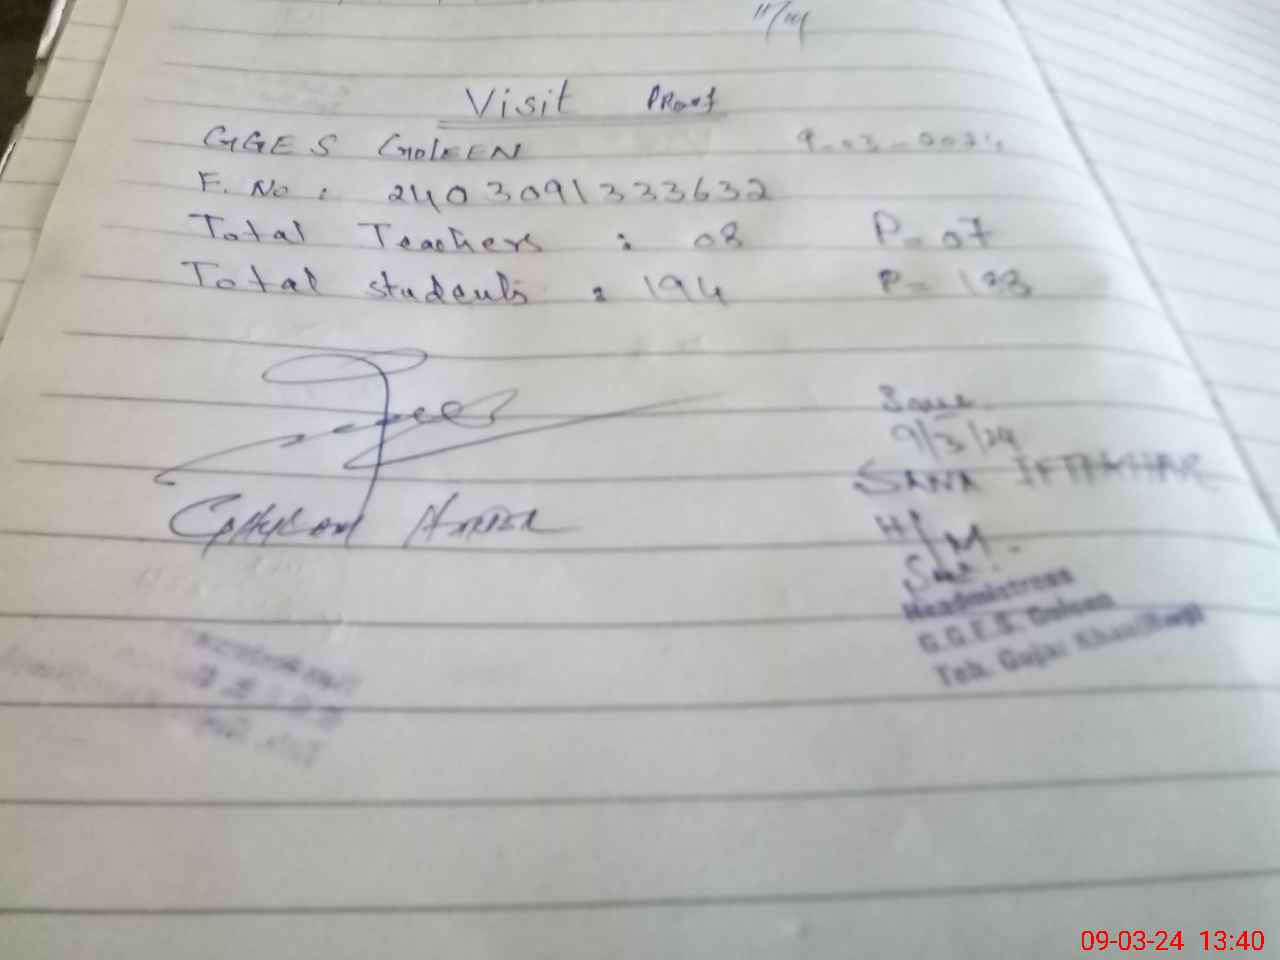 11/14
Visit Proof
GGES GolEEN 9-03-2024
F. No : 2403091333632
Total Teachers : 08 P = 07
Total students : 194 P = 133
9/3/24
SANA IFTIKHAR
H/M.
Headmistress
G.G.E.S. Goleen
Teh. Gujar Khan (Rwp)
09-03-24 13:40